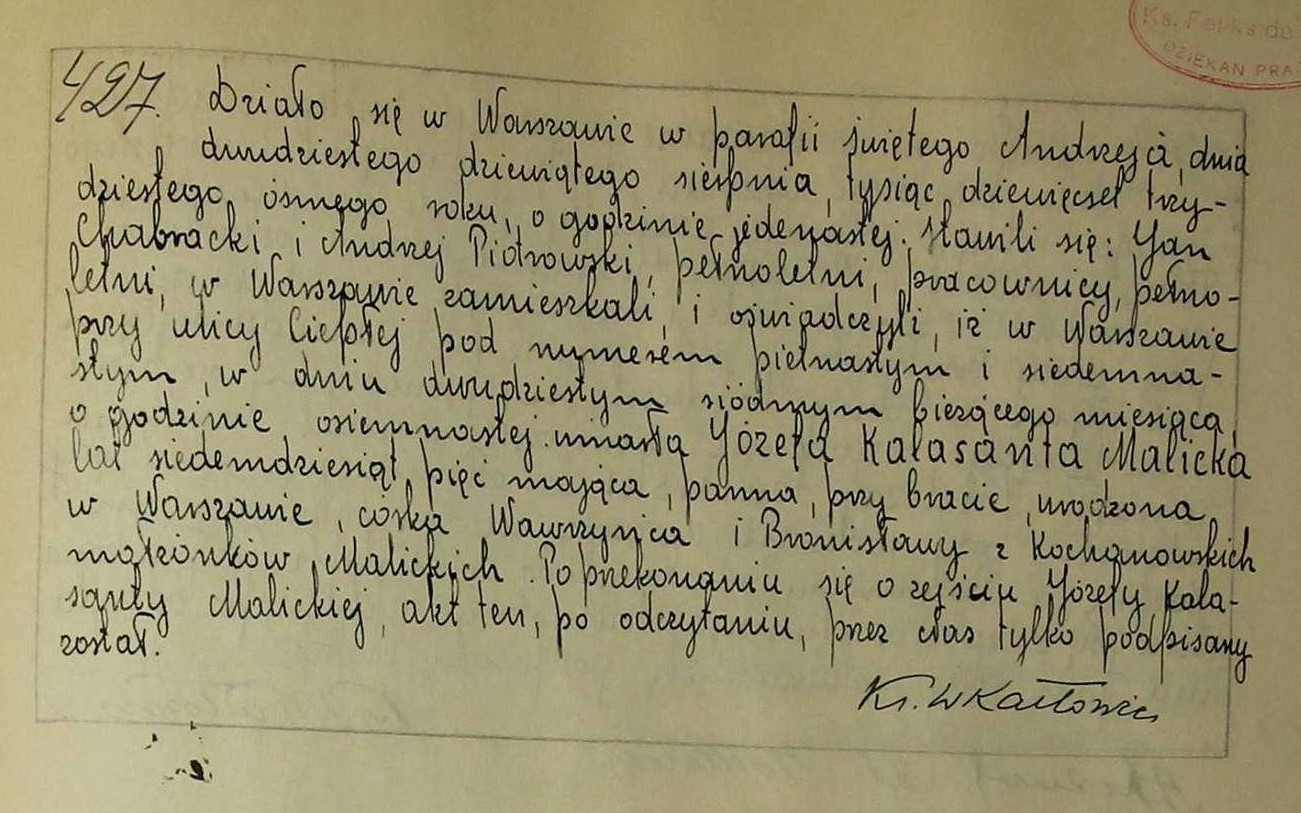 Ks. Feliks de
DZIEKAN PRA
427. Działo się w Warszawie w parafii świętego Andrzeja, dnia
dwudziestego dziewiątego sierpnia, tysiąc dziewięćset trzy-
dziestego ósmego roku, o godzinie jedenastej. Stawili się: Jan
Chabracki i Andrzej Piotrowski, pełnoletni, pracownicy, pełno-
letni, w Warszawie zamieszkali, i oświadczyli, iż w Warszawie
przy ulicy Ciepłej pod numerem piętnastym i siedemna-
stym, w dniu dwudziestym siódmym bieżącego miesiąca,
o godzinie osiemnastej umarła Józefa Kalasanta Malicka
lat siedemdziesiąt pięć mająca, panna, przy bracie, urodzona
w Warszawie, córka Wawrzyńca i Bronisławy z Kochanowskich
małżonków Malickich. Po przekonaniu się o zejściu Józefy Kala-
santy Malickiej, akt ten, po odczytaniu, przez nas tylko podpisany
został.
Ks. W